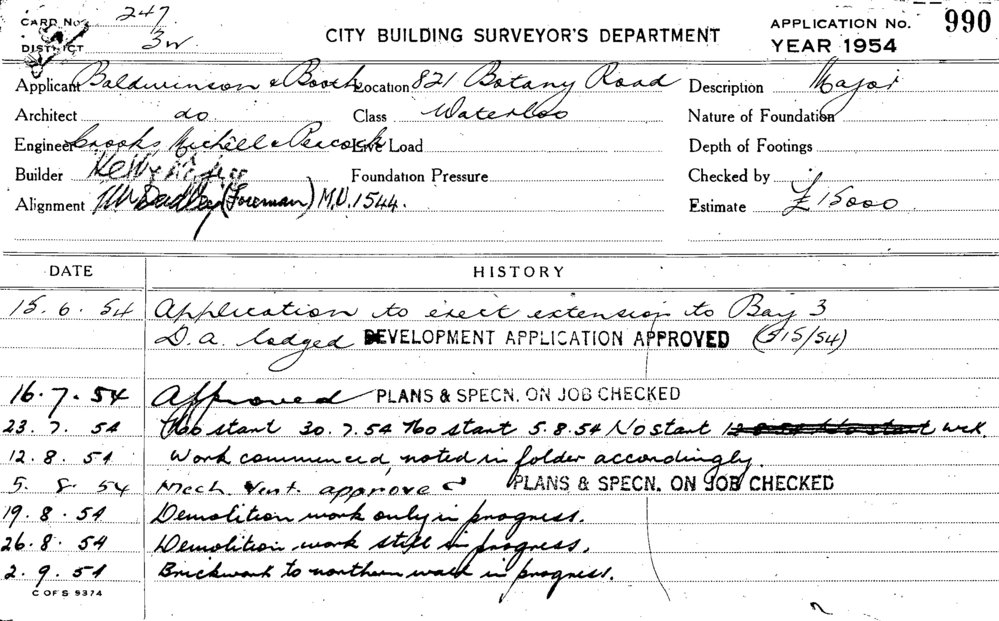 CARD No. 247
DISTRICT 3W
CITY BUILDING SURVEYOR'S DEPARTMENT
APPLICATION No. 990
YEAR 1954
Applicant Baldwinson & Booth Location 821 Botany Road Description Major
Architect do Class Waterloo Nature of Foundation
Engineer Crooks Michell & Peacock Live Load Depth of Footings
Builder Foundation Pressure Checked by
Alignment (Foreman) M.U.1544. Estimate £15000
DATE HISTORY
15.6.54 Application to erect extension to Bay 3
D.A. lodged DEVELOPMENT APPLICATION APPROVED (515/54)
16.7.54 Approved PLANS & SPECN. ON JOB CHECKED
23.7.54 No start 30.7.54 No start 5.8.54 No start
12.8.54 Work commenced, noted in folder accordingly.
5.8.54 Mech. Vent. approved PLANS & SPECN. ON JOB CHECKED
19.8.54 Demolition work only in progress.
26.8.54 Demolition work still in progress.
2.9.54 Brickwork to northern wall in progress.
C OF S 9374